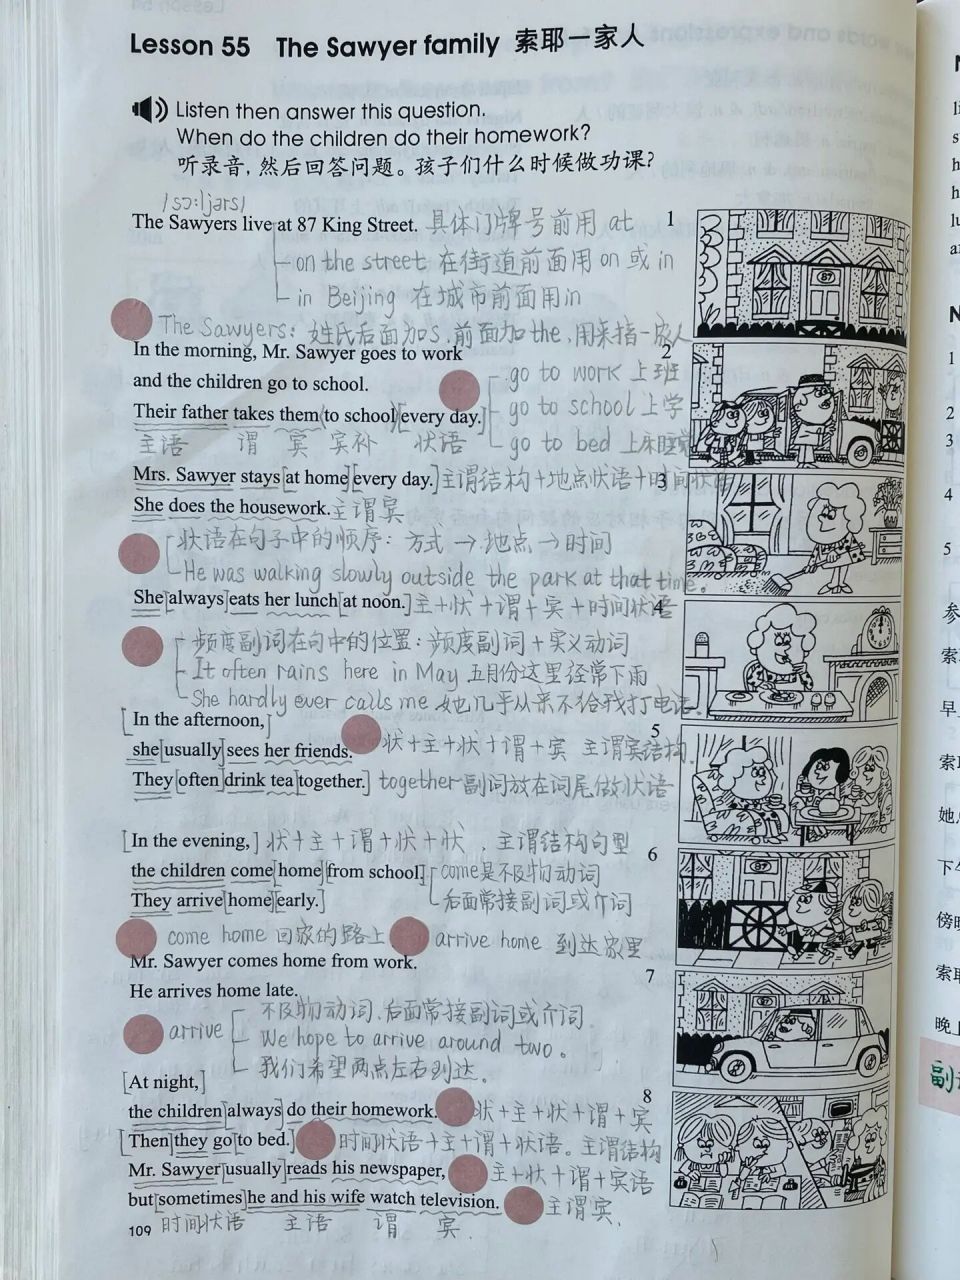 Lesson 55 The Sawyer family 索耶一家人
Listen then answer this question.
When do the children do their homework?
听录音，然后回答问题。孩子们什么时候做功课？
/sɔːljərs/
The Sawyers live at 87 King Street. 具体门牌号前用 at
on the street 在街道前面用 on 或 in
in Beijing 在城市前面用in
The Sawyers: 姓氏后面加s,前面加the,用来指一家人
In the morning, Mr. Sawyer goes to work
go to work 上班
and the children go to school.
go to school 上学
Their father takes them (to school) [every day.]
go to bed 上床睡觉
主语 谓 宾 宾补 状语
Mrs. Sawyer stays [at home] [every day.] 主谓结构+地点状语+时间状语
She does the housework. 主谓宾
状语在句子中的顺序：方式→地点→时间
He was walking slowly outside the park at that time.
She [always] eats her lunch [at noon.] 主+状+谓+宾+时间状语
频度副词在句中的位置：频度副词+实义动词
It often rains here in May 五月份这里经常下雨
She hardly ever calls me 她几乎从来不给我打电话.
[In the afternoon,]
she [usually] sees her friends. 状+主+状+谓+宾 主谓宾结构.
They [often] drink tea [together.] together副词放在词尾做状语
[In the evening,] 状+主+谓+状+状，主谓结构句型
the children come [home] [from school] come是不及物动词
They arrive [home] [early.] 后面常接副词或介词
come home 回家的路上 arrive home 到达家里
Mr. Sawyer comes home from work.
He arrives home late.
不及物动词.后面常接副词或介词.
arrive We hope to arrive around two.
我们希望两点左右到达.
[At night,]
the children [always] do their homework. 状+主+状+谓+宾
[Then] they go [to bed.] 时间状语+主+谓+状语。主谓结构
Mr. Sawyer [usually] reads his newspaper, 主+状+谓+宾语
but [sometimes] he and his wife watch television. 主谓宾.
109 时间状语 主语 谓 宾.
1
2
3
4
5
6
7
8
87
87
87
1
2
3
4
5
参
索
早
她
下
傍
晚
副